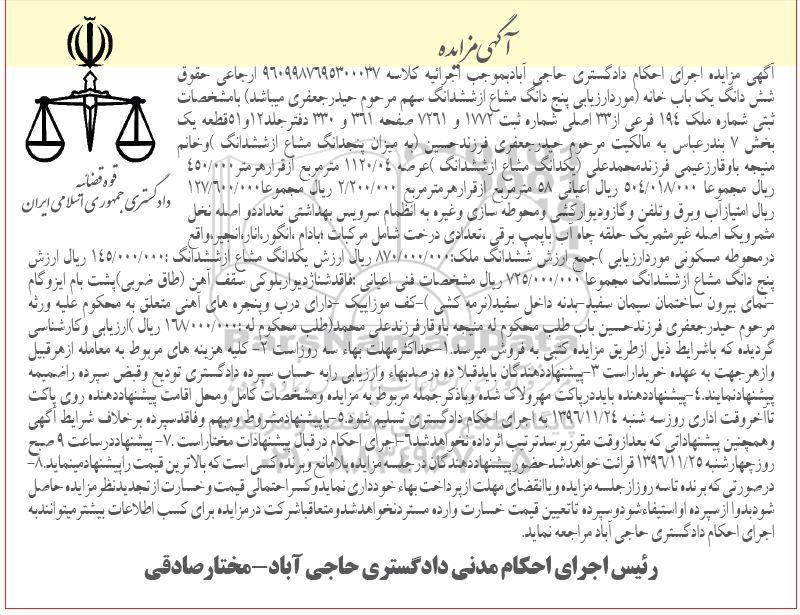 آگهی مزایده
قوه قضائیه
دادگستری جمهوری اسلامی ایران
آگهی مزایده اجرای احکام دادگستری حاجی آبادبموجب اجرائیه کلاسه ۹۶۰۹۹۸۷۶۹۵۳۰۰۰۳۷ ارجاعی حقوق
شش دانگ یک باب خانه (موردارزیابی پنج دانگ مشاع ازششدانگ سهم مرحوم حیدرجعفری میباشد) بامشخصات
ثبتی شماره ملک ۱۹۴ فرعی از۳۳ اصلی شماره ثبت ۱۷۷۲ و ۷۲۶۱ صفحه ۳۶۱ و ۳۳۰ دفترجلد۱۲و۵۱قطعه یک
بخش ۷ بندرعباس به مالکیت مرحوم حیدرجعفری فرزندحسین (به میزان پنجدانگ مشاع ازششدانگ )وخانم
منیجه باوقارزعیمی فرزندمحمدعلی (یکدانگ مشاع ازششدانگ )عرصه ۱۱۲۰/۰۴ مترمربع ازقرارهرمتر۴۵۰/۰۰۰
ریال مجموعا ۵۰۴/۰۱۸/۰۰۰ ریال اعیانی ۵۸ مترمربع ازقرارهرمترمربع ۲/۲۰۰/۰۰۰ ریال مجموعا۱۲۷/۶۰۰/۰۰۰
ریال امتیازآب وبرق وتلفن وگازودیوارکشی ومحوطه سازی وغیره به انظمام سرویس بهداشتی تعداددو اصله نخل
مثمرویک اصله غیرمثمریک حلقه چاه آب باپمپ برقی ،تعدادی درخت شامل مرکبات ،بادام ،انگور،انار،انجیر،واقع
درمحوطه مسکونی موردارزیابی )جمع ارزش ششدانگ ملک:۸۷۰/۰۰۰/۰۰۰ ریال ارزش یکدانگ مشاع ازششدانگ :۱۴۵/۰۰۰/۰۰۰ ریال ارزش
پنج دانگ مشاع ازششدانگ مجموعا ۷۲۵/۰۰۰/۰۰۰ ریال مشخصات فنی اعیانی :فاقدشناژدیواربلوکی سقف آهن (طاق ضربی)پشت بام ایزوگام
-نمای بیرون ساختمان سیمان سفید-بدنه داخل سفید(نرمه کشی )-کف موزاییک -دارای درب وپنجره های آهنی متعلق به محکوم علیه ورثه
مرحوم حیدرجعفری فرزندحسین باب طلب محکوم له منیجه باوقارفرزندعلی محمد(طلب محکوم له :۱۶۸/۰۰۰/۰۰۰ ریال )ارزیابی وکارشناسی
گردیده که باشرایط ذیل ازطریق مزایده کتبی به فروش میرسد.۱-حداکثرمهلت بهاء سه روزاست ۲- کلیه هزینه های مربوط به معامله ازهرقبیل
وازهرجهت به عهده خریداراست ۳-پیشنهاددهندگان بایدقبلا ده درصدبهاء وارزیابی رابه حساب سپرده دادگستری تودیع وقبض سپرده راضمیمه
پیشنهادنمایند.۴-پیشنهاددهنده بایددرپاکت مهرولاک شده وباذکرجمله مربوط به مزایده ومشخصات کامل ومحل اقامت پیشنهاددهنده روی پاکت
تاآخروقت اداری روزسه شنبه ۱۳۹۶/۱۱/۲۴ به اجرای احکام دادگستری تسلیم شود.۵-باپیشنهادمشروط ومبهم وفاقدسپرده برخلاف شرایط آگهی
وهمچنین پیشنهاداتی که بعدازوقت مقرربرسدترتیب اثرداده نخواهدشد۶-اجرای احکام درقبال پیشنهادات مختاراست .۷- پیشنهاددرساعت ۹ صبح
روزچهارشنبه ۱۳۹۶/۱۱/۲۵ قرائت خواهدشدحضورپیشنهاددهندگان درجلسه مزایده بلامانع وبرنده کسی است که بالاترین قیمت راپیشنهادمینماید.۸-
درصورتی که برنده تاسه روزازجلسه مزایده ویاانقضای مهلت ازپرداخت بهاء خودداری نمایدوکسراحتمالی قیمت وخسارت ازتجدیدنظرمزایده حاصل
شودبدوا ازسپرده اواستیفاءشودوسپرده تاتعیین قیمت خسارت وارده مستردنخواهدشدومتعاقباشرکت درمزایده برای کسب اطلاعات بیشترمیتوانندبه
اجرای احکام دادگستری حاجی آباد مراجعه نماید.
رئیس اجرای احکام مدنی دادگستری حاجی آباد-مختارصادقی
ParsNamadData